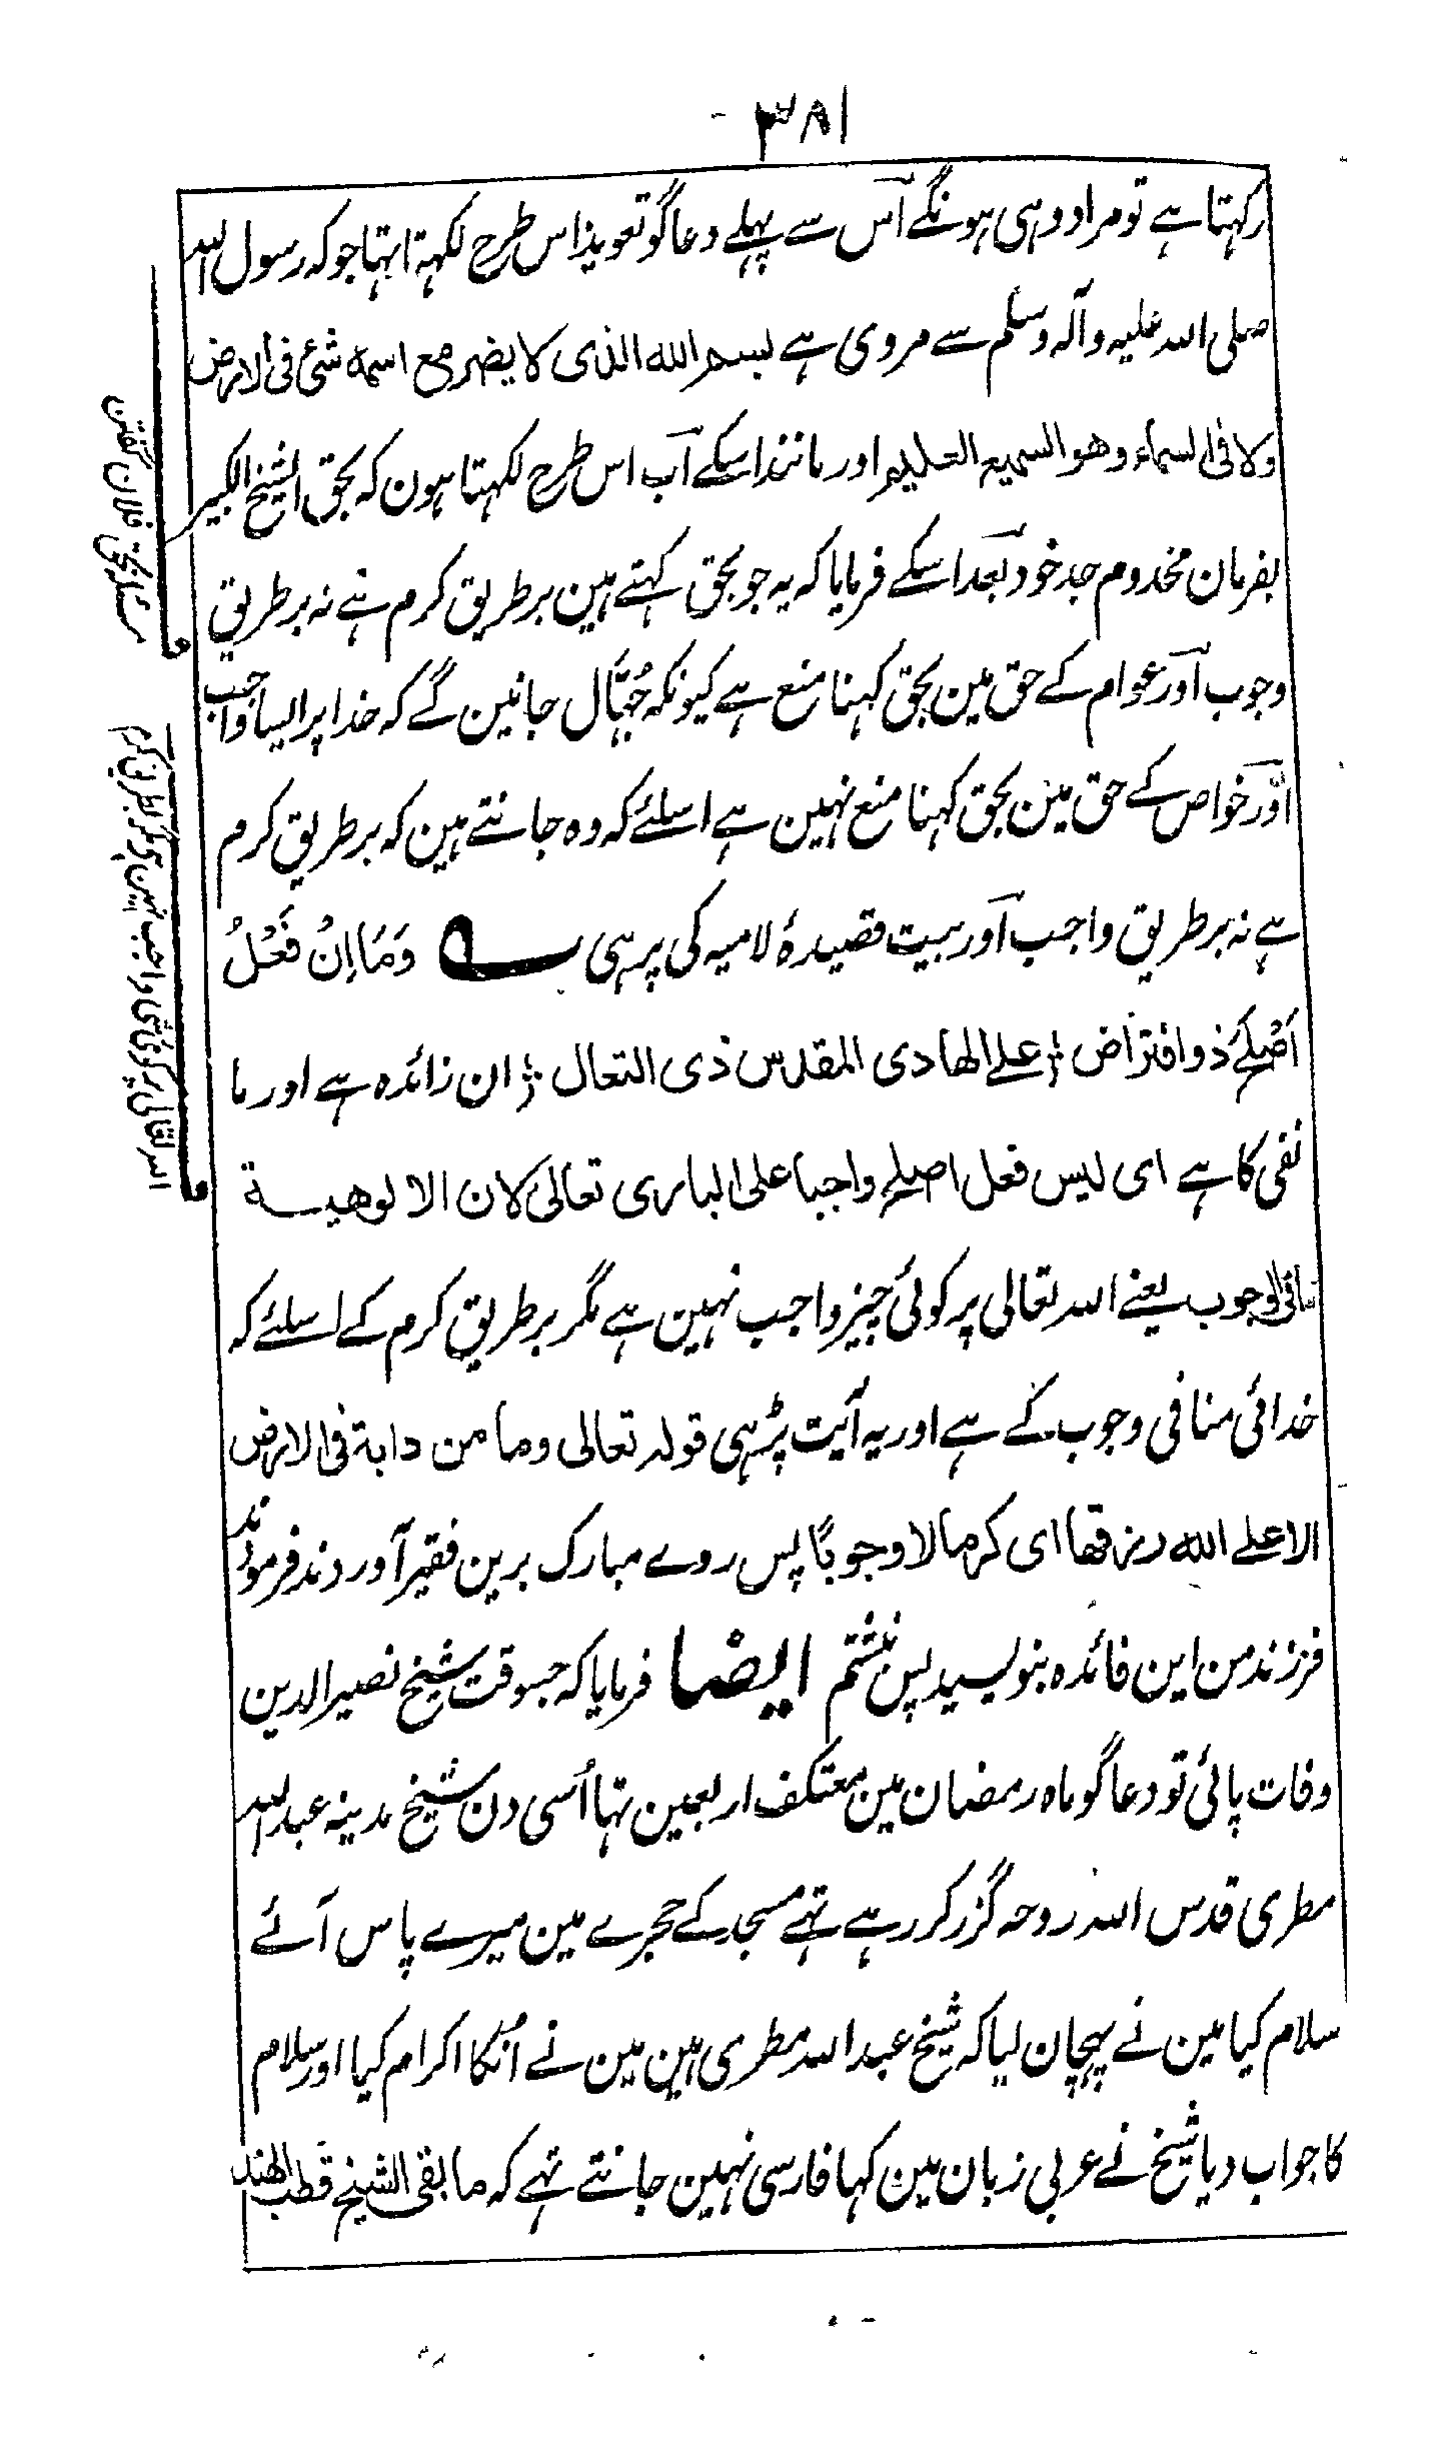 ۳۸۱
رکہتا ہے تو مراد وہی ہونگے آس سے پہلے دعاگو تعویذ اس طرح لکہتا تہا جو کہ رسول اللہ
صلی اللہ علیہ وآلہ وسلم سے مروی ہے بسم اللہ الذی لا یضر مع اسمہ شئ فی الارض
ولا فی السماء وھو السمیع العلیم اور مانند اسکے آب اس طرح لکہتا ہون کہ بحق الشیخ الکبیر
بفرمان مخدوم جد خود بعد اسکے فرمایا کہ یہ جو بحق کہتے ہین بر طریق کرم ہے نہ بر طریق
وجوب آور عوام کے حق مین بحق کہنا منع ہے کیونکہ جُہّال جانین گے کہ خدا پر ایسا واجب
آور خواص کے حق مین بحق کہنا منع نہین ہے اسلئے کہ وہ جانتے ہین کہ بر طریق کرم
ہے نہ بر طریق واجب آور بیت قصیدۂ لامیہ کی پرہی وَمَا اِنْ فَعْلُ
اَصْلَحَ ذو افتراض علے الھادی المقدس ذی التعال ان زائدہ ہے اور ما
نفی کا ہے ای لیس فعل اصلح واجبا علی الباری تعالیٰ لان الالوھیۃ
تنافی الوجوب یعنے اللہ تعالی پر کوئی چیز واجب نہین ہے مگر بر طریق کرم کے اسلئے کہ
خدائی منافی وجوب کے ہے اور یہ آیت پڑہی قولہ تعالی وما من دابۃ فی الارض
الا علے اللہ رزقھا ای کرما لا وجوبًا پس روے مبارک برین فقیر آوردند فرمودند
فرزند من این فائدہ بنویسید پس نبشتم ایضا فرمایا کہ جسوقت شیخ نصیر الدین
وفات پائی تو دعاگو ماہ رمضان مین معتکف اربعین تہا اُسی دن شیخ مدینہ عبد اللہ
مطری قدس اللہ روحہ گزر کر رہے تہے مسجد کے حجرے مین میرے پاس آئے
سلام کیا مین نے پہچان لیا کہ شیخ عبد اللہ مطری ہین مین نے اُنکا اکرام کیا اور سلام
کا جواب دیا شیخ نے عربی زبان مین کہا فارسی نہین جانتے تہے کہ ما بقی الشیخ قطب الھند
مسئلہ بحق فلان گفتن
اللہ تعالی پر کوئی شی واجب نہین ہے مگر بر طریق کرم